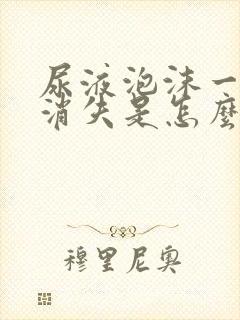 尿液泡沫一
消失是怎麼
穆里尼奧